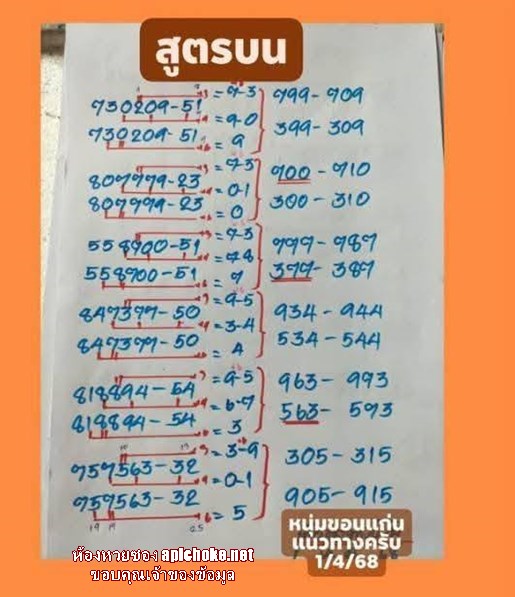 สูตรบน
730209-51 = 7-3 799-709
= 9-0
730209-51 = 9 399-309
807979-23 = 7-3 900-910
= 0-1
807979-23 = 0 300-310
558900-51 = 7-3 777-787
= 7-8
558900-51 = 7 377-387
847377-50 = 9-5 934-944
= 3-4
847377-50 = 4 534-544
818894-54 = 9-5 963-993
= 6-9
818894-54 = 3 563-593
957563-32 = 3-9 305-315
= 0-1
957563-32 = 5 905-915
หนุ่มขอนแก่น
แนวทางครับ
1/4/68
ห้องหวยซอง apichoke.net
ขอบคุณเจ้าของข้อมูล